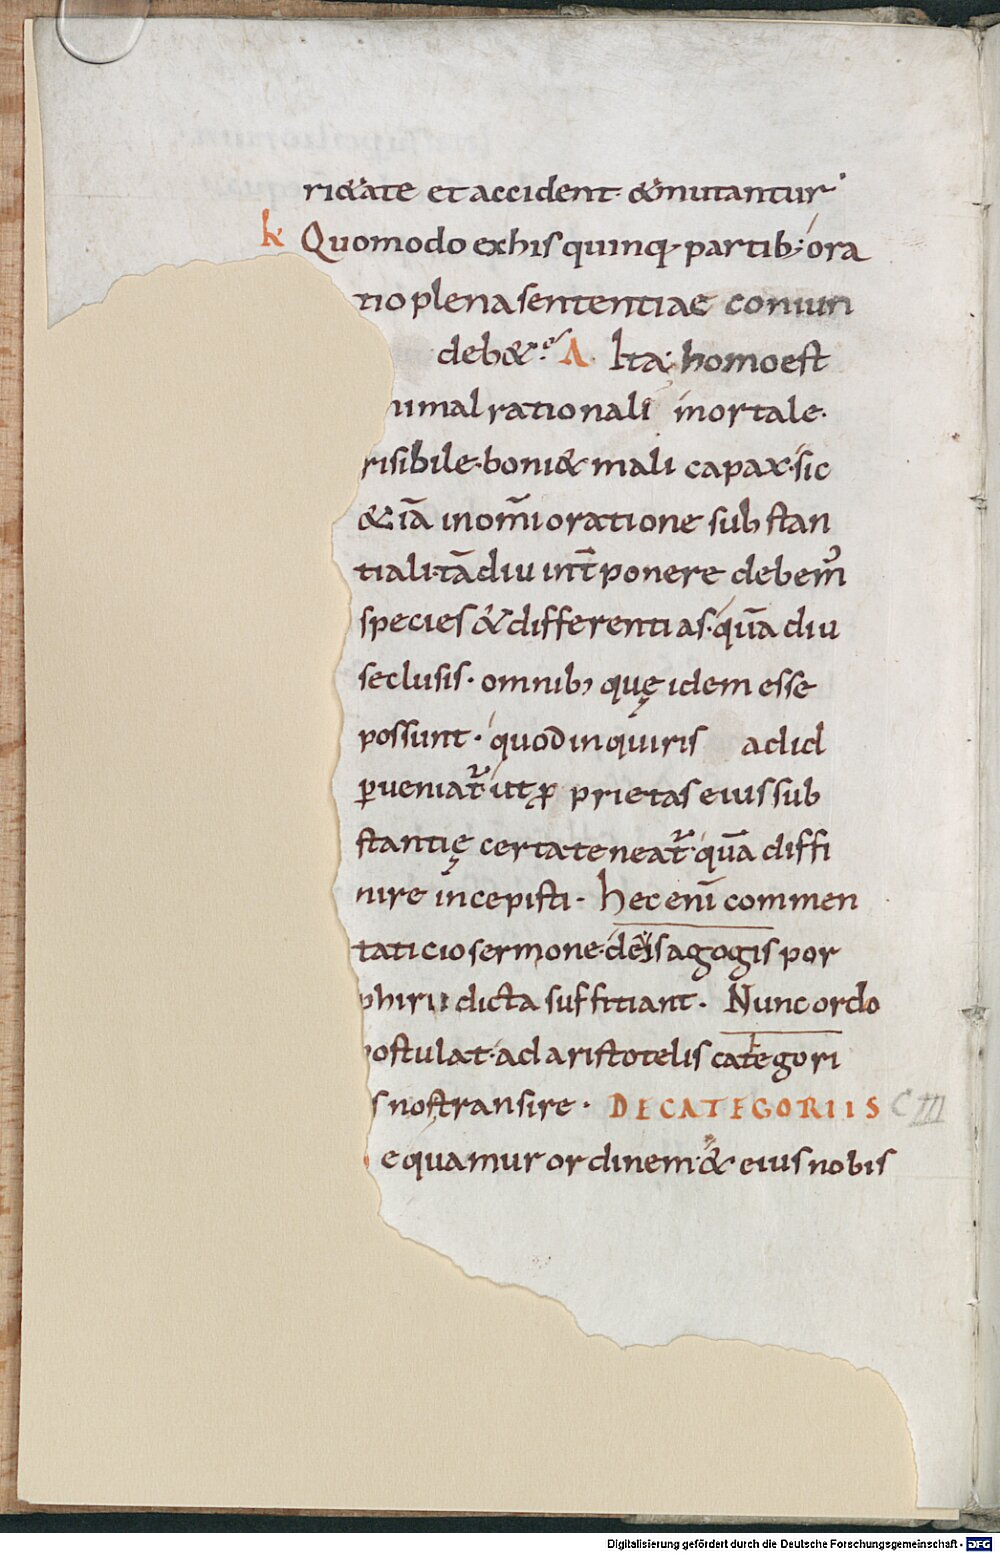 ri&ate et accident &mutantur
k Quomodo exhis quinq; partib; ora
tio plena sententiae coniun
deb&ur A Ita; homo est
nimal rationali mortale.
risibile. boni& mali capax. sic
&iā inom̄i oratione substan
tiali. tādiu int̄ponere debem᷒
species &differentias. quādiu
seclusis. omnib; quę idem esse
possunt. quod inquiris ad id
ꝑueniat᷒ ut ꝓprietas eius sub
stantię certa teneat᷒. quā diffi
nire incepisti. Hec enī commen
taticio sermone. de isagogis por
phirii dicta suffitiant. Nunc ordo
postulat. ad aristotelis categori
s nos transire. DE CATEGORIIS C III
equamur ordinem. & eius nobis
Digitalisierung gefördert durch die Deutsche Forschungsgemeinschaft - DFG